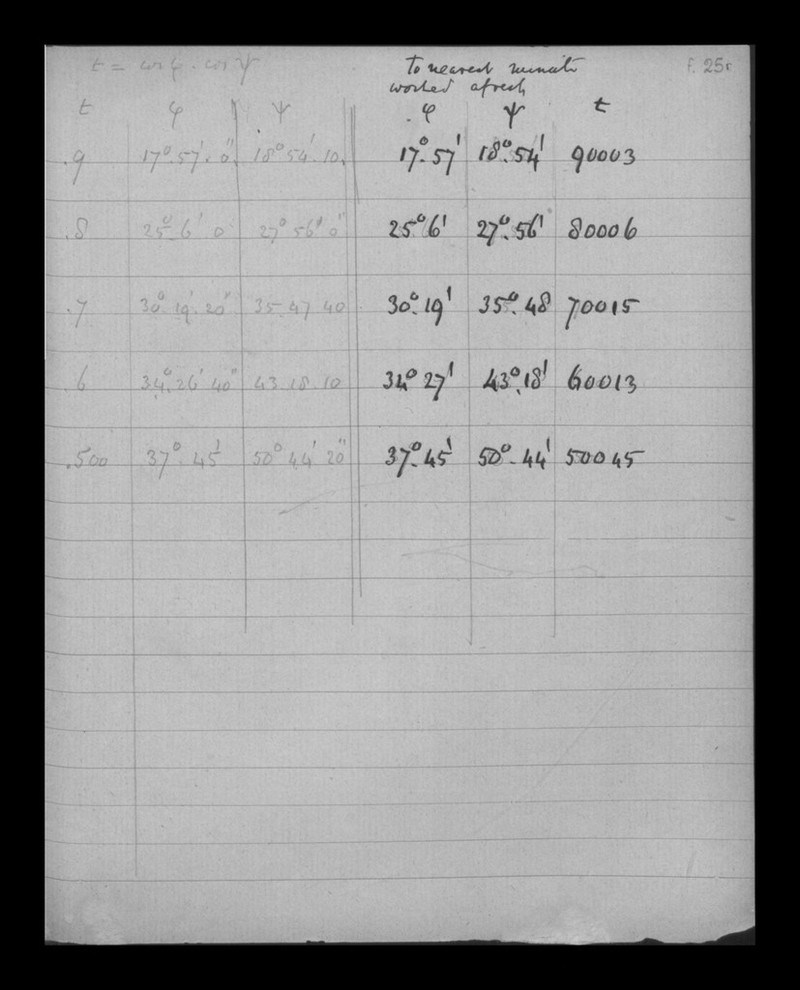 t = cos φ . cos ψ
To nearest minute
worked afresh
f. 25r
t φ ψ φ ψ t
.9 17°.57'.0" 18°54'.10. 17°.57' 18°.54' 90003
.8 25°.6' 0 27° 56' 0" 25°6' 27°.56' 80006
.7 30°.19'.20" 35.47 40 30°.19' 35°.48 70015
.6 34°.26' 40" 43.18.10 34° 27' 43°.18' 60013
.500 37°.45' 50° 44' 20" 37°.45' 50°.44' 50045